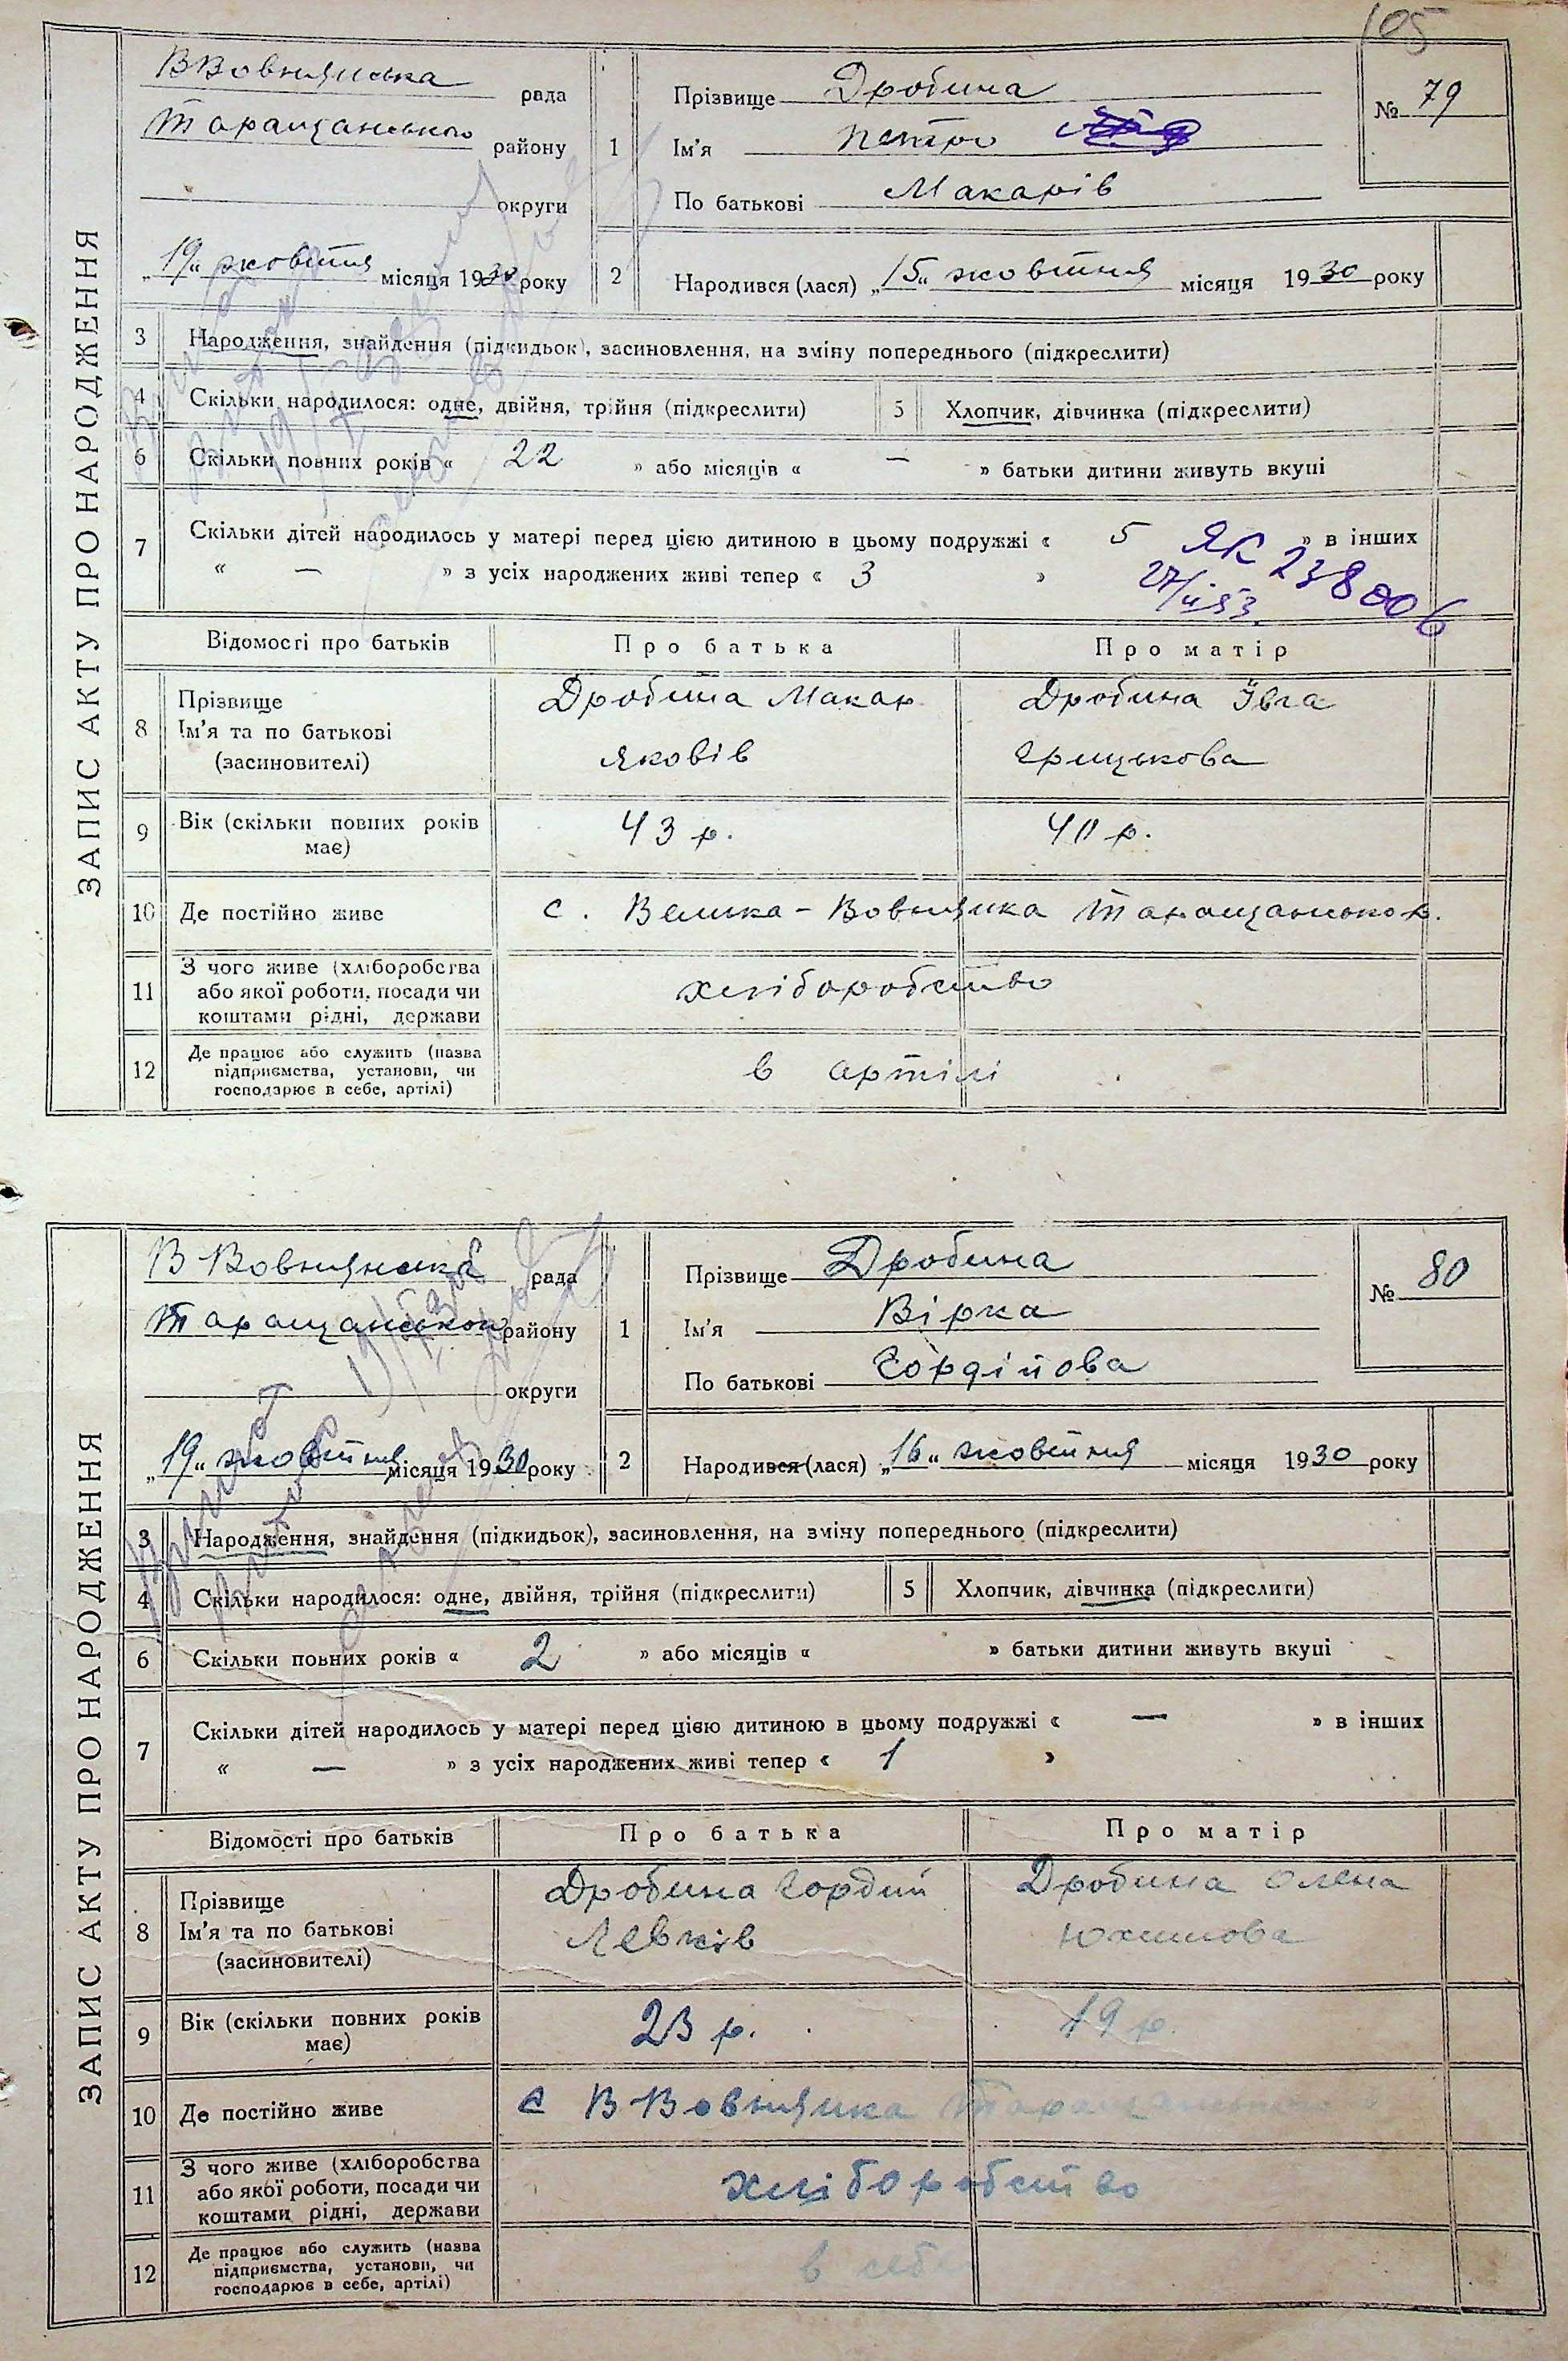 105
ЗАПИС АКТУ ПРО НАРОДЖЕННЯ
ВВовнянська рада
Таращанського району
округи
„19“ жовтня місяця 1930 року
1
Прізвище Дробина
Ім'я Петро
По батькові Макарів
№ 79
2
Народився (лася) „15“ жовтня місяця 1930 року
3 Народження, знайдення (підкидьок), засиновлення, на зміну попереднього (підкреслити)
4 Скільки народилося: одне, двійня, трійня (підкреслити) 5 Хлопчик, дівчинка (підкреслити)
6 Скільки повних років « 22 » або місяців « — » батьки дитини живуть вкупі
7 Скільки дітей народилось у матері перед цією дитиною в цьому подружжі « 5 » в інших
« — » з усіх народжених живі тепер « 3 »
ЯК 238006
27/II 53.
Відомості про батьків Про батька Про матір
8 Прізвище Ім'я та по батькові (засиновителі)
Дробина Макар Дробина Ївга
Яковів Грицькова
9 Вік (скільки повних років має) 43 р. 40 р.
10 Де постійно живе с. Велика-Вовнянка Таращансько р.
11 З чого живе (хліборобства або якої роботи, посади чи коштами рідні, держави хліборобство
12 Де працює або служить (назва підприємства, установи, чи господарює в себе, артілі) в артілі
ЗАПИС АКТУ ПРО НАРОДЖЕННЯ
В Вовнянська рада
Таращанськог району
округи
„19“ жовтня місяця 1930 року
1
Прізвище Дробина
Ім'я Вірка
По батькові Гордійова
№ 80
2
Народився (лася) „16“ жовтня місяця 1930 року
3 Народження, знайдення (підкидьок), засиновлення, на зміну попереднього (підкреслити)
4 Скільки народилося: одне, двійня, трійня (підкреслити) 5 Хлопчик, дівчинка (підкреслити)
6 Скільки повних років « 2 » або місяців « » батьки дитини живуть вкупі
7 Скільки дітей народилось у матері перед цією дитиною в цьому подружжі « — » в інших
« — » з усіх народжених живі тепер « 1 »
Відомості про батьків Про батька Про матір
8 Прізвище Ім'я та по батькові (засиновителі)
Дробина Гордий Дробина Олена
Левків Юхимова
9 Вік (скільки повних років має) 23 р. 19 р.
10 Де постійно живе с В Вовнянка
11 З чого живе (хліборобства або якої роботи, посади чи коштами рідні, держави хліборобство
12 Де працює або служить (назва підприємства, установи, чи господарює в себе, артілі) в себ